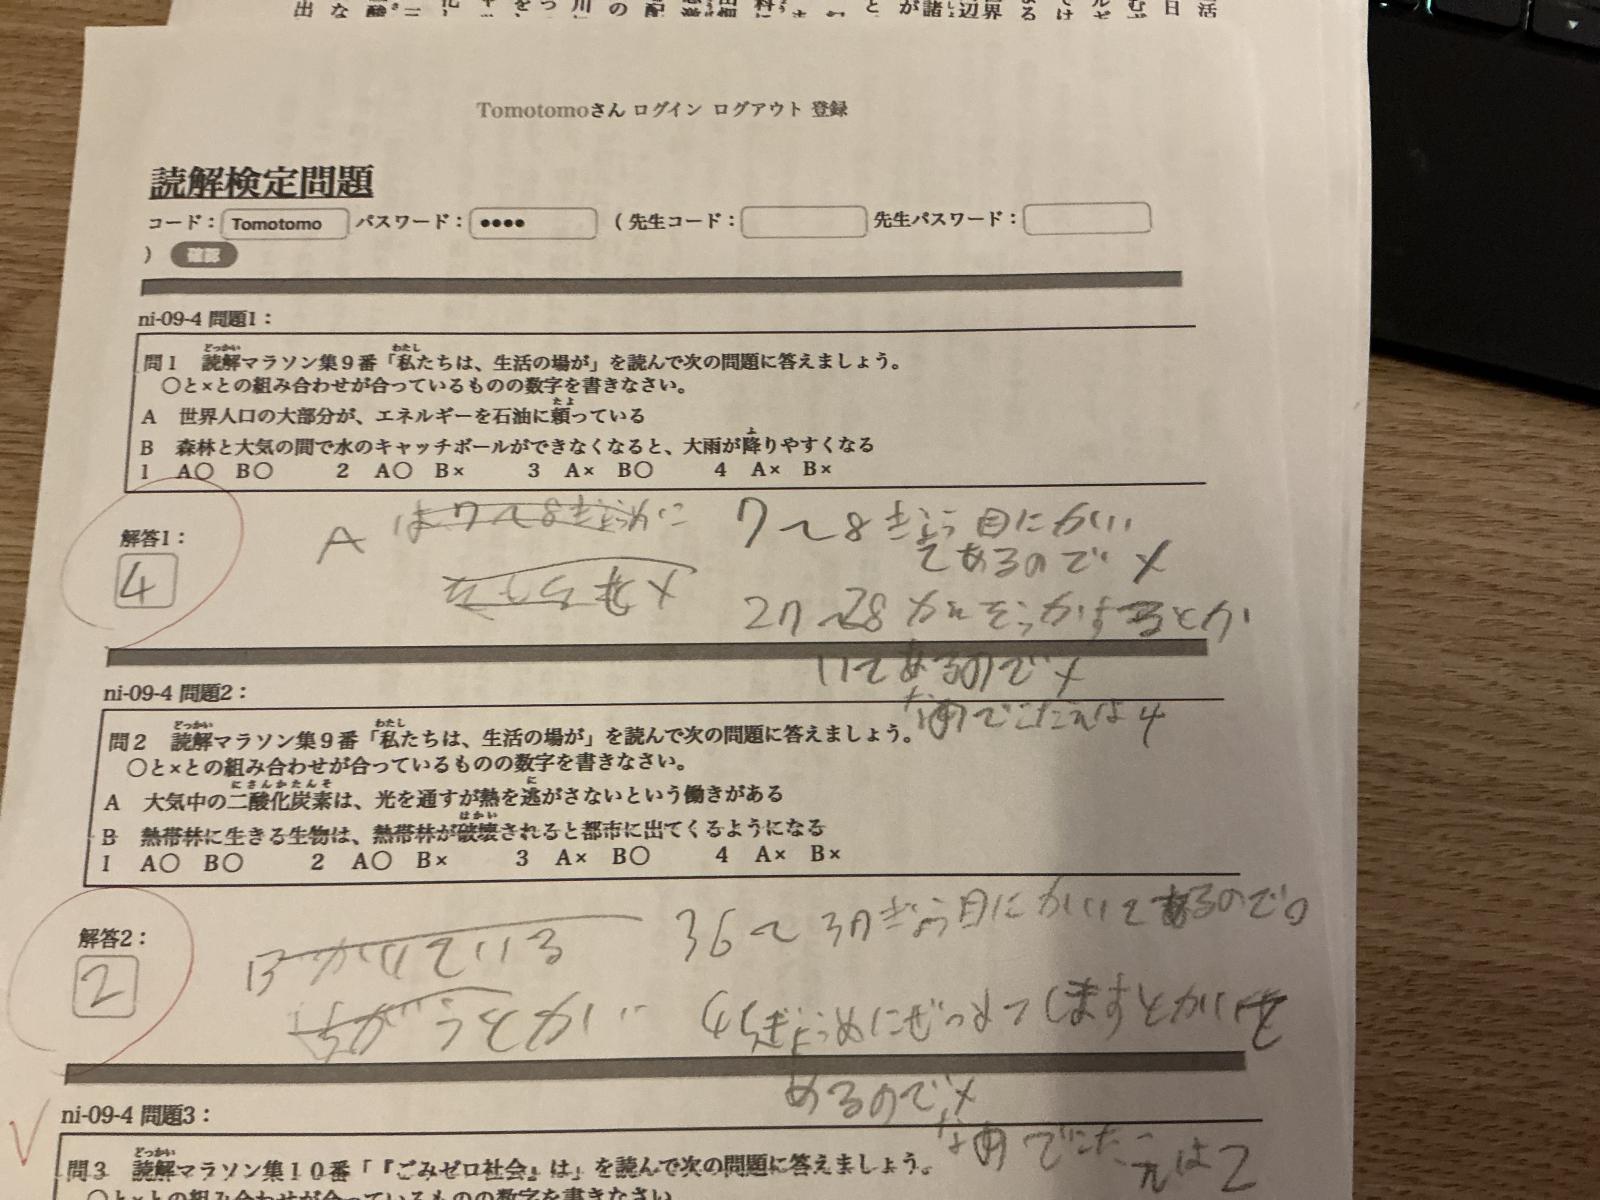 Tomotomoさん ログイン ログアウト 登録
読解検定問題
コード： Tomotomo パスワード： •••• （ 先生コード： 先生パスワード：
） 確認
ni-09-4 問題1：
問１ 読解マラソン集９番「私たちは、生活の場が」を読んで次の問題に答えましょう。
〇と×との組み合わせが合っているものの数字を書きなさい。
A 世界人口の大部分が、エネルギーを石油に頼っている
B 森林と大気の間で水のキャッチボールができなくなると、大雨が降りやすくなる
1 A〇 B〇 2 A〇 B× 3 A× B〇 4 A× B×
解答1：
4
A
7〜8ぎょう目にかい
てあるので×
27〜28
いてあるので×
なのでこたえは4
ni-09-4 問題2：
問２ 読解マラソン集９番「私たちは、生活の場が」を読んで次の問題に答えましょう。
〇と×との組み合わせが合っているものの数字を書きなさい。
A 大気中の二酸化炭素は、光を通すが熱を逃がさないという働きがある
B 熱帯林に生きる生物は、熱帯林が破壊されると都市に出てくるようになる
1 A〇 B〇 2 A〇 B× 3 A× B〇 4 A× B×
解答2：
2
36〜37ぎょう目にかいてあるので〇
45ぎょうめにぜつめつしますとかいて
あるので×
なのでこたえは2
ni-09-4 問題3：
問３ 読解マラソン集１０番「『ごみゼロ社会』は」を読んで次の問題に答えましょう。
〇と×との組み合わせが合っているものの数字を書きなさい。